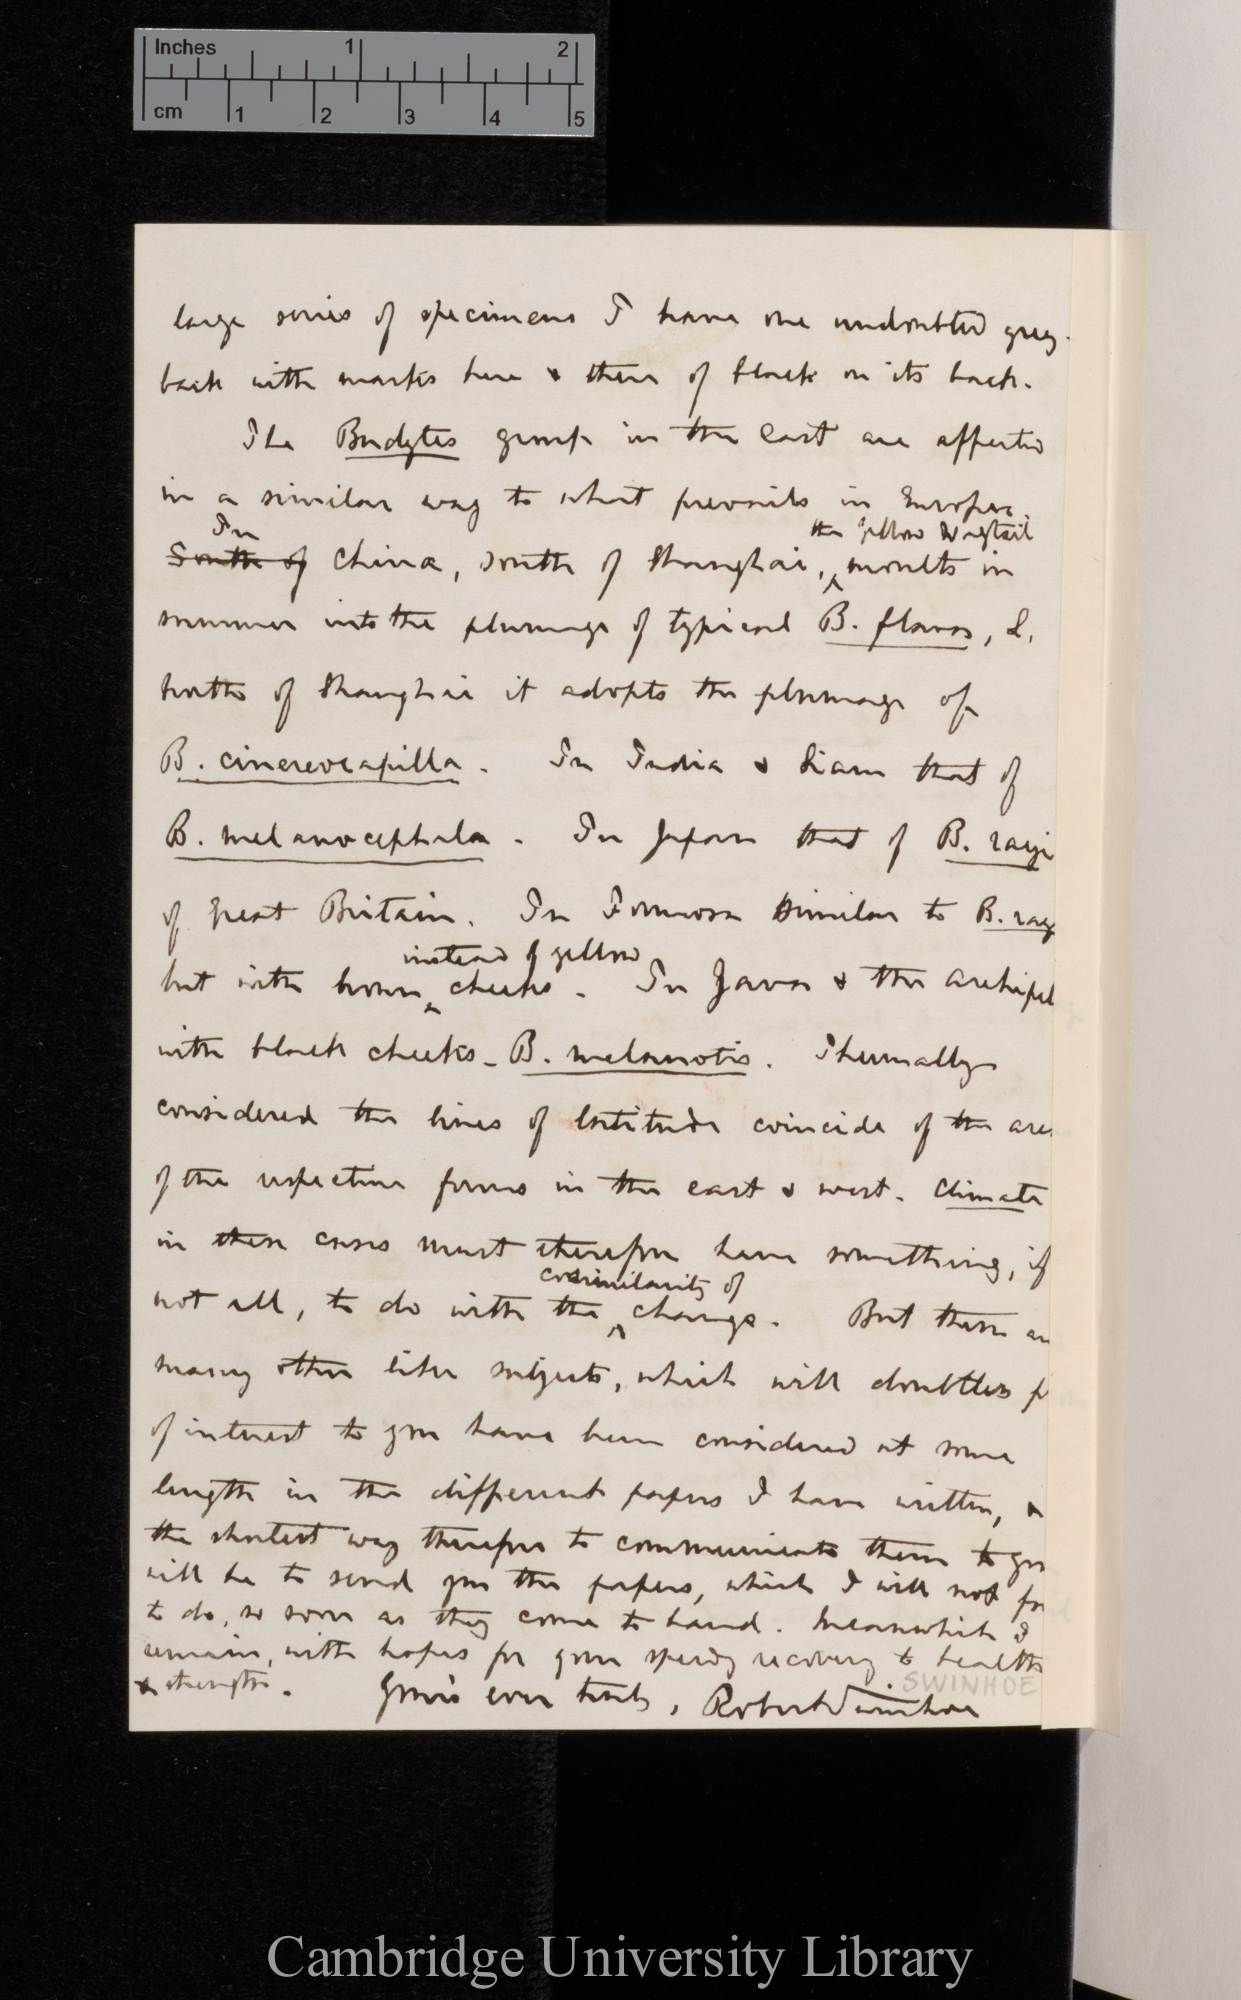 Inches 1 2
cm 1 2 3 4 5
large series of specimens I have one undoubted grey-
back with marks here & there of black on its back.
The Budytes group in the east are affected
in a similar way to what prevails in Europe.
In the yellow Wagtail
South of China, south of Shanghai, moults in
summer into the plumage of typical B. flava, L.
North of Shanghai it adopts the plumage of
B. cinereocapilla. In India & Siam that of
B. melanocephala. In Japan that of B. rayi
of Great Britain. In Formosa similar to B. ray
instead of yellow
but with brown cheeks. In Java & the archipel
with black cheeks – B. melanotis. Thermally
considered the lines of latitude coincide of the are
of the respective forms in the east & west. Climate
in these cases must therefore have something, if
cosimilarity of
not all, to do with the change. But there are
many other like subjects, which will doubtless p
of interest to you have been considered at some
length in the different papers I have written, &
the shortest way therefore to communicate them to you
will be to send you the papers, which I will not fo
to do, so soon as they come to hand. Meanwhile I
remain, with hopes for your speedy recovery to health
& strength. Yours ever truly, Robert Swinhoe
SWINHOE
Cambridge University Library